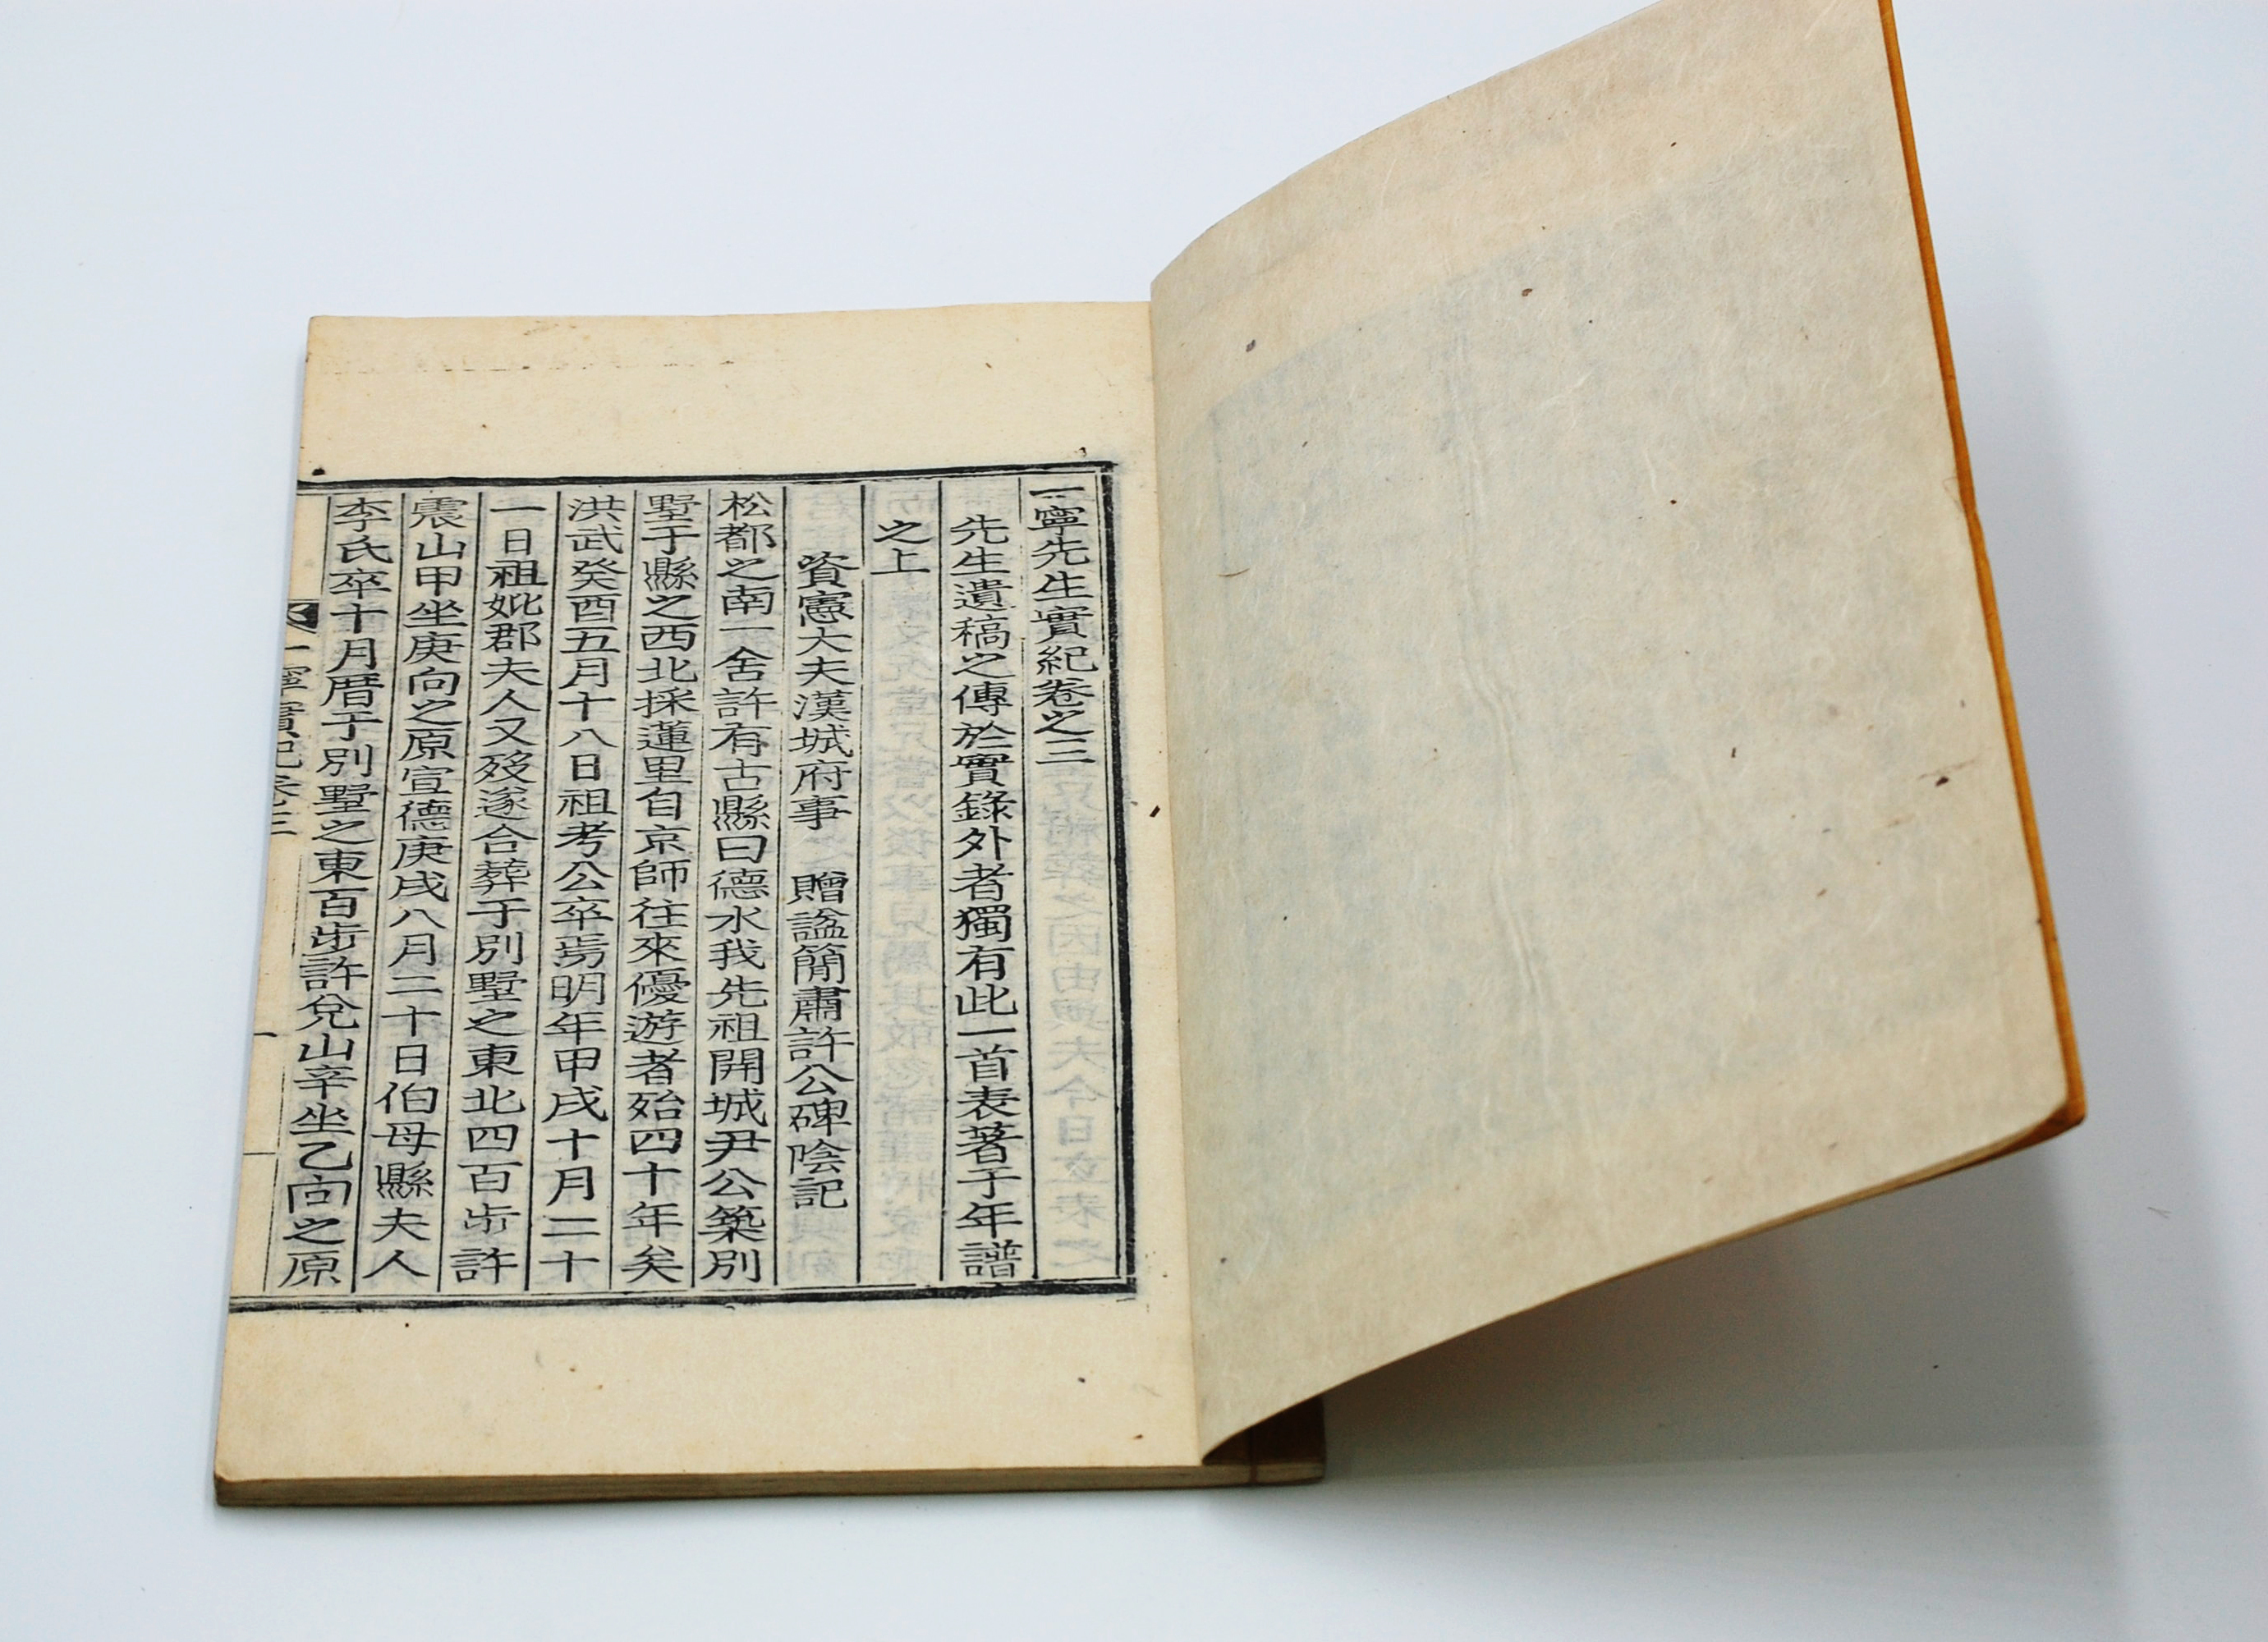 一寧先生實紀卷之三
先生遺稿之傳於實錄外者獨有此一首表著于年譜
之上
資憲大夫漢城府事 贈諡簡肅許公碑陰記
松都之南一舍許有古縣曰德水我先祖開城尹公築別
墅于縣之西北採蓮里自京師往來優游者殆四十年矣
洪武癸酉五月十八日祖考公卒焉明年甲戌十月二十
一日祖妣郡夫人又歿遂合葬于別墅之東北四百步許
震山甲坐庚向之原宣德庚戌八月二十日伯母縣夫人
李氏卒十月厝于別墅之東百步許兌山辛坐乙向之原
一寧實紀卷之三
一